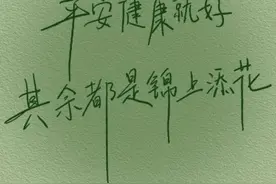 平安健康就好
其余都是锦上添花